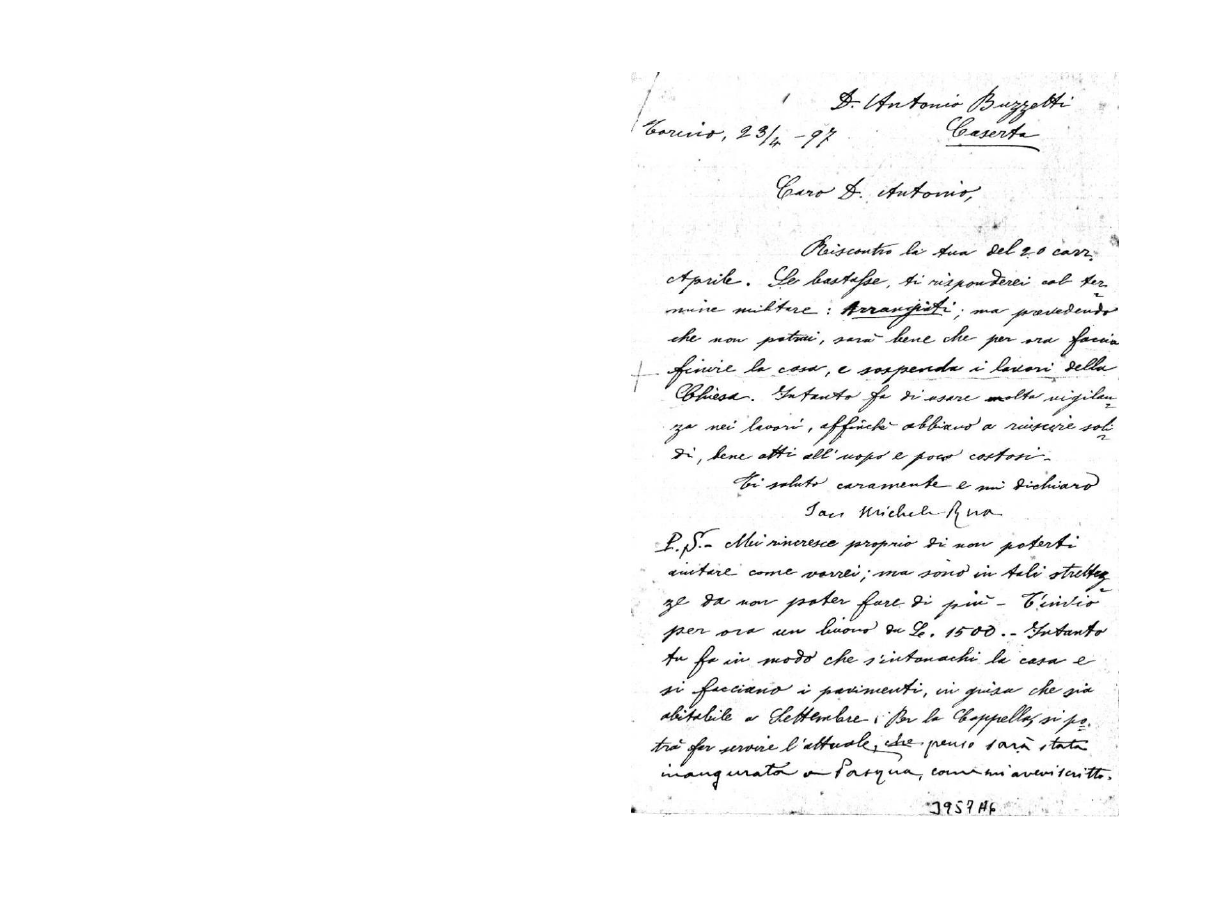 D. Antonio Buzzetti
Torino, 23/4 - 97 Caserta
Caro D. Antonio,
Riscontro la tua del 20 corr.
Aprile. Se bastasse, ti risponderei col ter-
mine militare: Arrangiati; ma prevedendo
che non potrai, sarà bene che per ora faccia
finire la casa, e sospenda i lavori della
Chiesa. Intanto fa di usare molta vigilan-
za nei lavori, affinchè abbiano a riuscire soli-
di, bene atti all'uopo e poco costosi -
Ti saluto caramente e mi dichiaro
Sac Michele Rua
P.S.- Mi rincresce proprio di non poterti
aiutare come vorrei; ma sono in tali strettez-
ze da non poter fare di più - T'invio
per ora un buono da L. 1500.- Intanto
tu fa in modo che s'intonachi la casa e
si facciano i pavimenti, in guisa che sia
abitabile a Settembre; Per la Cappella, si po-
trà far servire l'attuale, che penso sarà stata
inaugurata a Pasqua, come mi avevi scritto.